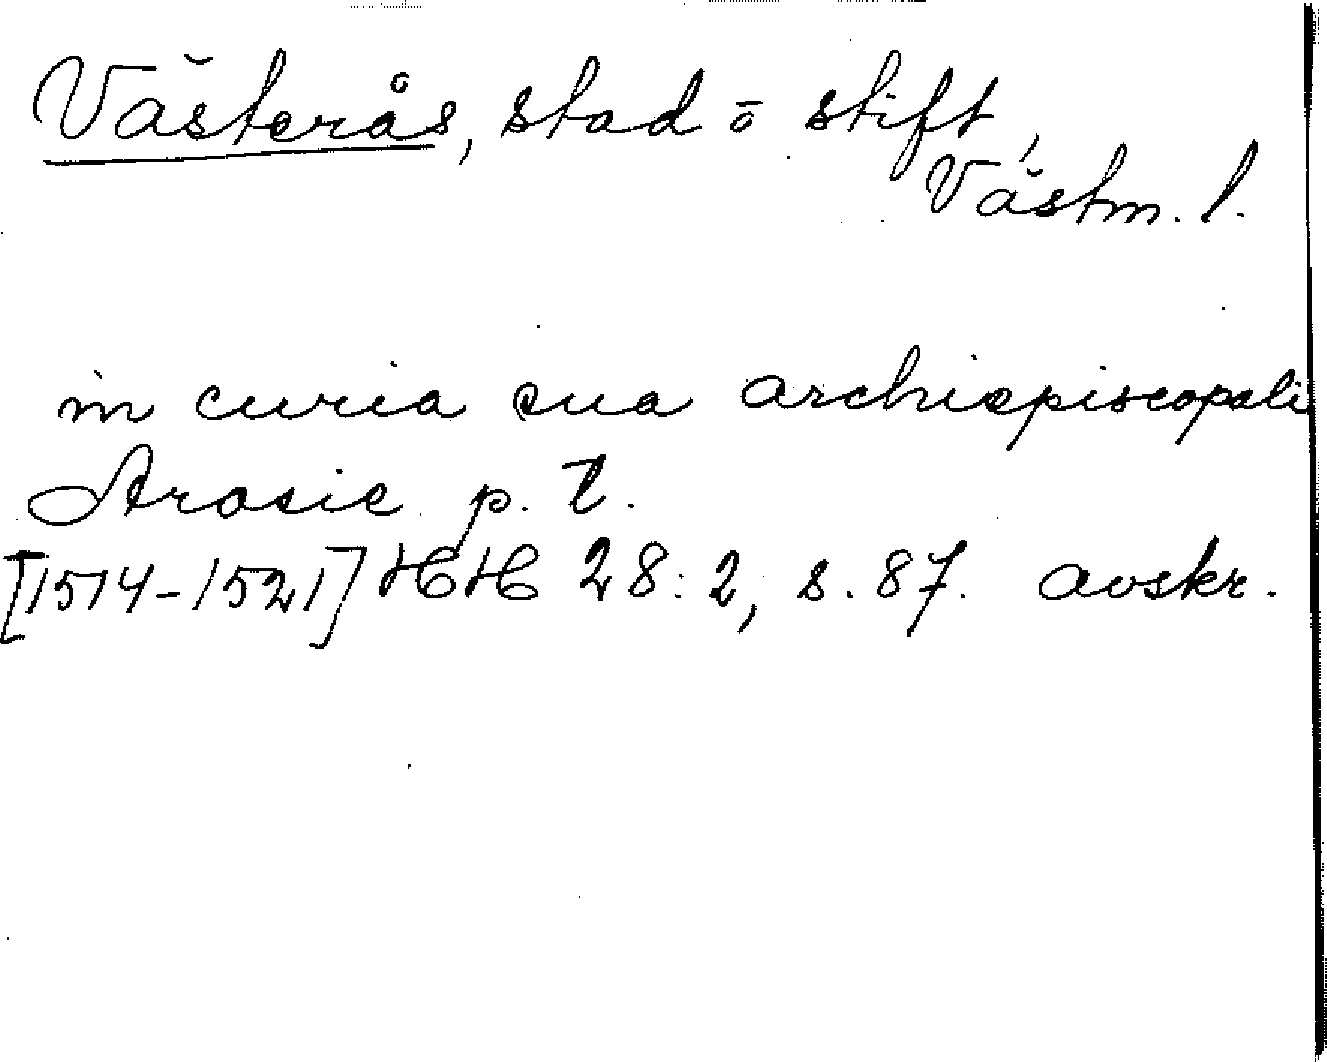 Västerås, stad o stift,
Västm. l.
in curia sua archiepiscopali
Arosie p. t.
[1514-1521] HH 28:2, s. 87. avskr.